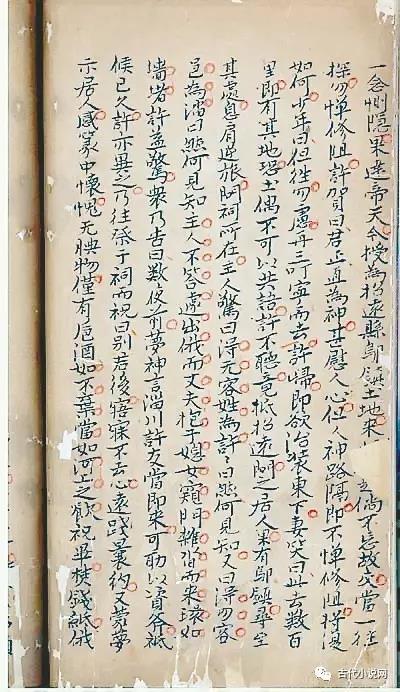 一念惻隐果達帝天今授為招遠縣邬鎮土地来 倘不忘故交當一往
探勿憚修阻許賀曰君正直為神甚慰人心但人神路隔即不憚修阻将復
如何少年曰但往勿慮再三叮寧而去許歸即欲治装東下妻笑曰此去数百
里即有其地恐土偶不可以共語許不聽竟抵招遠問之居人果有邬鎮尋至
其處息肩逆旅問祠所在主人驚曰得无客姓為許許曰然何見知又曰得勿客
邑為淄曰然何見知主人不答遽出俄而丈夫抱子媳女窺門雜沓而来環如
墻堵許益驚衆乃告曰数夜前夢神言淄川許友當即来可助以資斧祇
候已久許亦異之乃往祭于祠而祝曰别君後寤寐不去心遠踐曩約又蒙夢
示居人感篆中懷愧无腆物僅有卮酒如不棄當如河上之飲祝畢焚錢紙俄
古代小说网